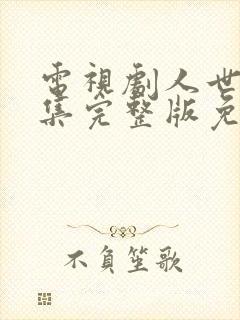 電視劇人世
集完整版免
不負笙歌